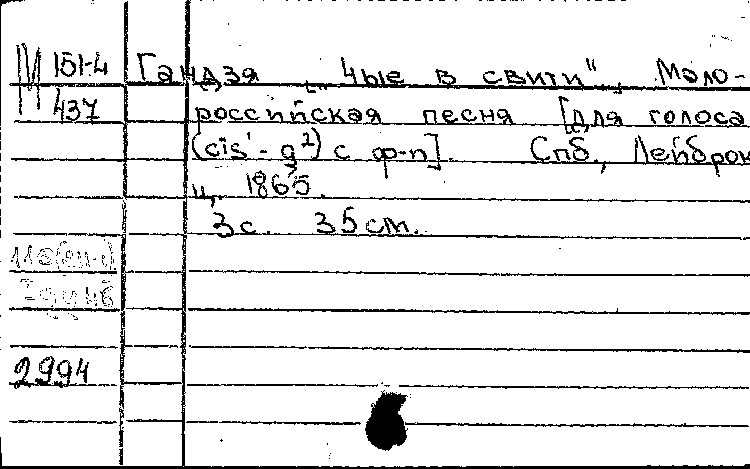 М 151-4
437
Гандзя „Чые в свити". Мало-
российская песня [для голоса
(cis¹ - g²) с ф-п]. Спб., Лейброк
ц. 1865.
3 с. 35 см.
2994